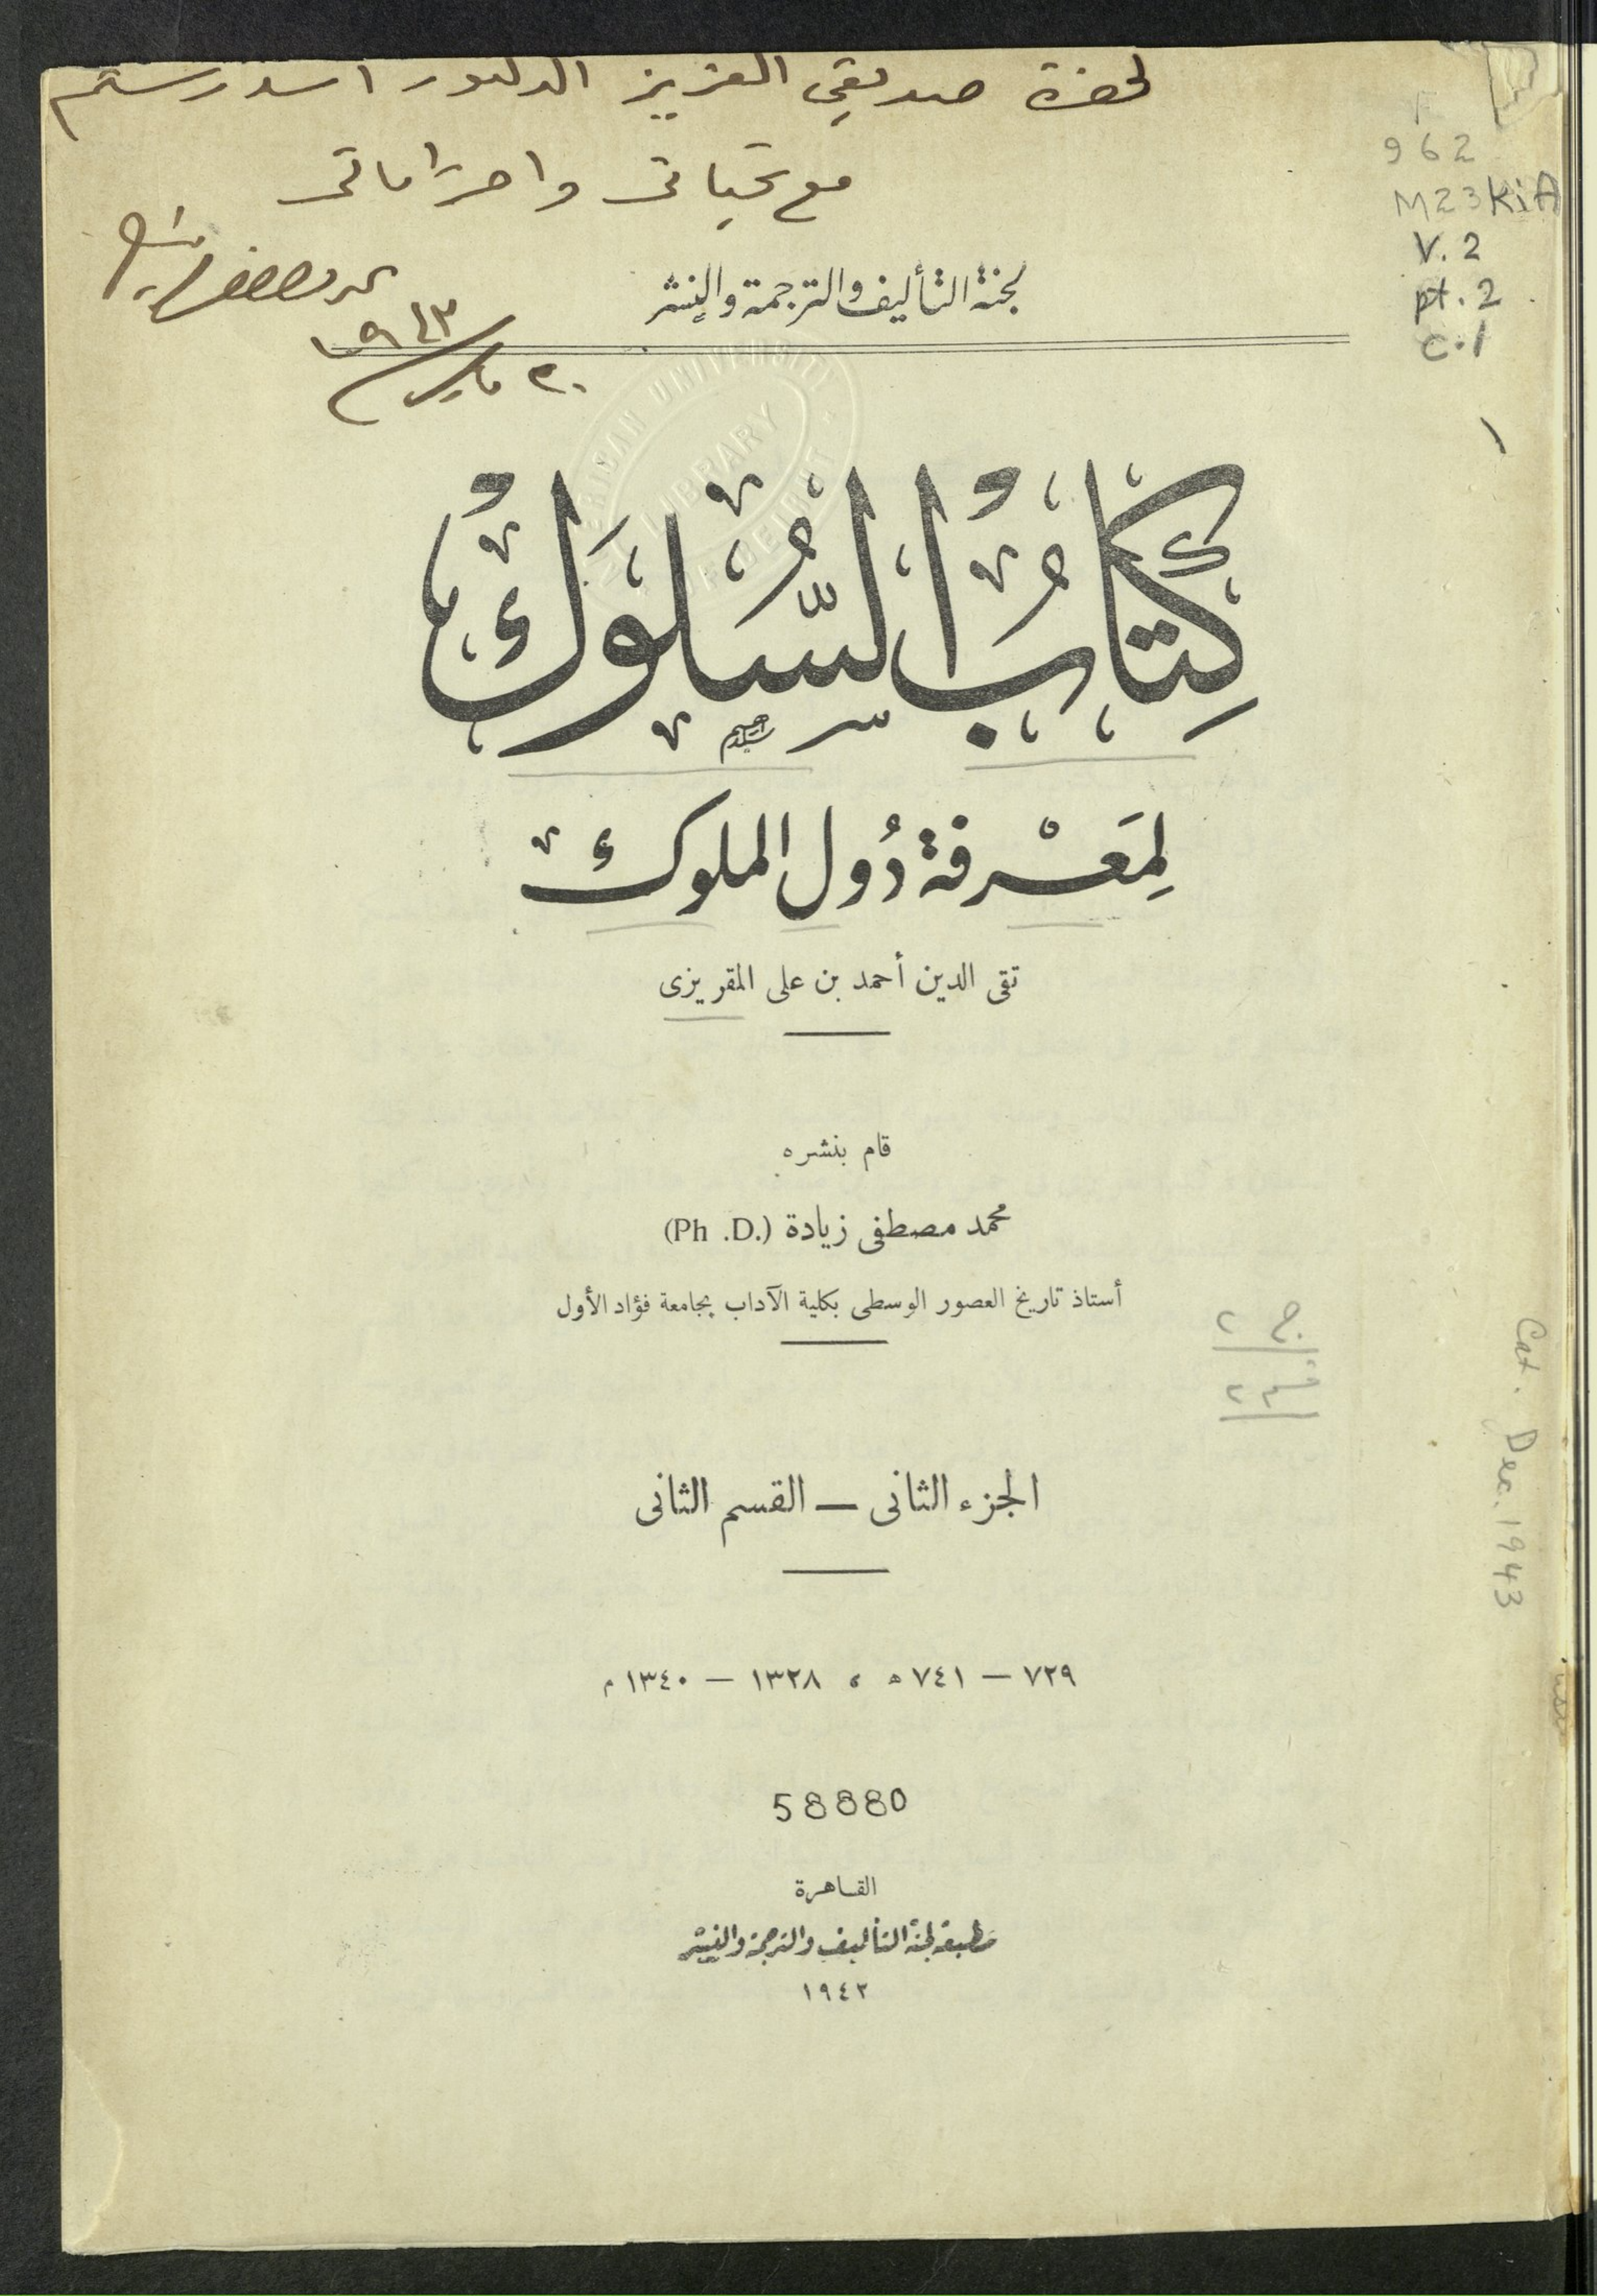 لحضرة صديقي العزيز الدكتور اسد رستم
مع تحياتى واحتراماتى
محمد مصطفى زيادة
٢٠ مايو ١٩٤٣
962
M23kiA
V. 2
pt. 2
c.1
لجنة التأليف والترجمة والنشر
LIBRARY
كِتَابُ السُّلُوكُ
لِمَعْرفة دُول الملوك
تقى الدين أحمد بن على المقريزى
قام بنشره
محمد مصطفى زيادة (Ph .D.)
أستاذ تاريخ العصور الوسطى بكلية الآداب بجامعة فؤاد الأول
ج ٢
قسم ٢
Cat. Dec. 1943
الجزء الثانى — القسم الثانى
٧٢٩ — ٧٤١ ه ، ١٣٢٨ — ١٣٤٠ م
58880
القاهرة
مطبعة لجنة التأليف والترجمة والنشر
١٩٤٢